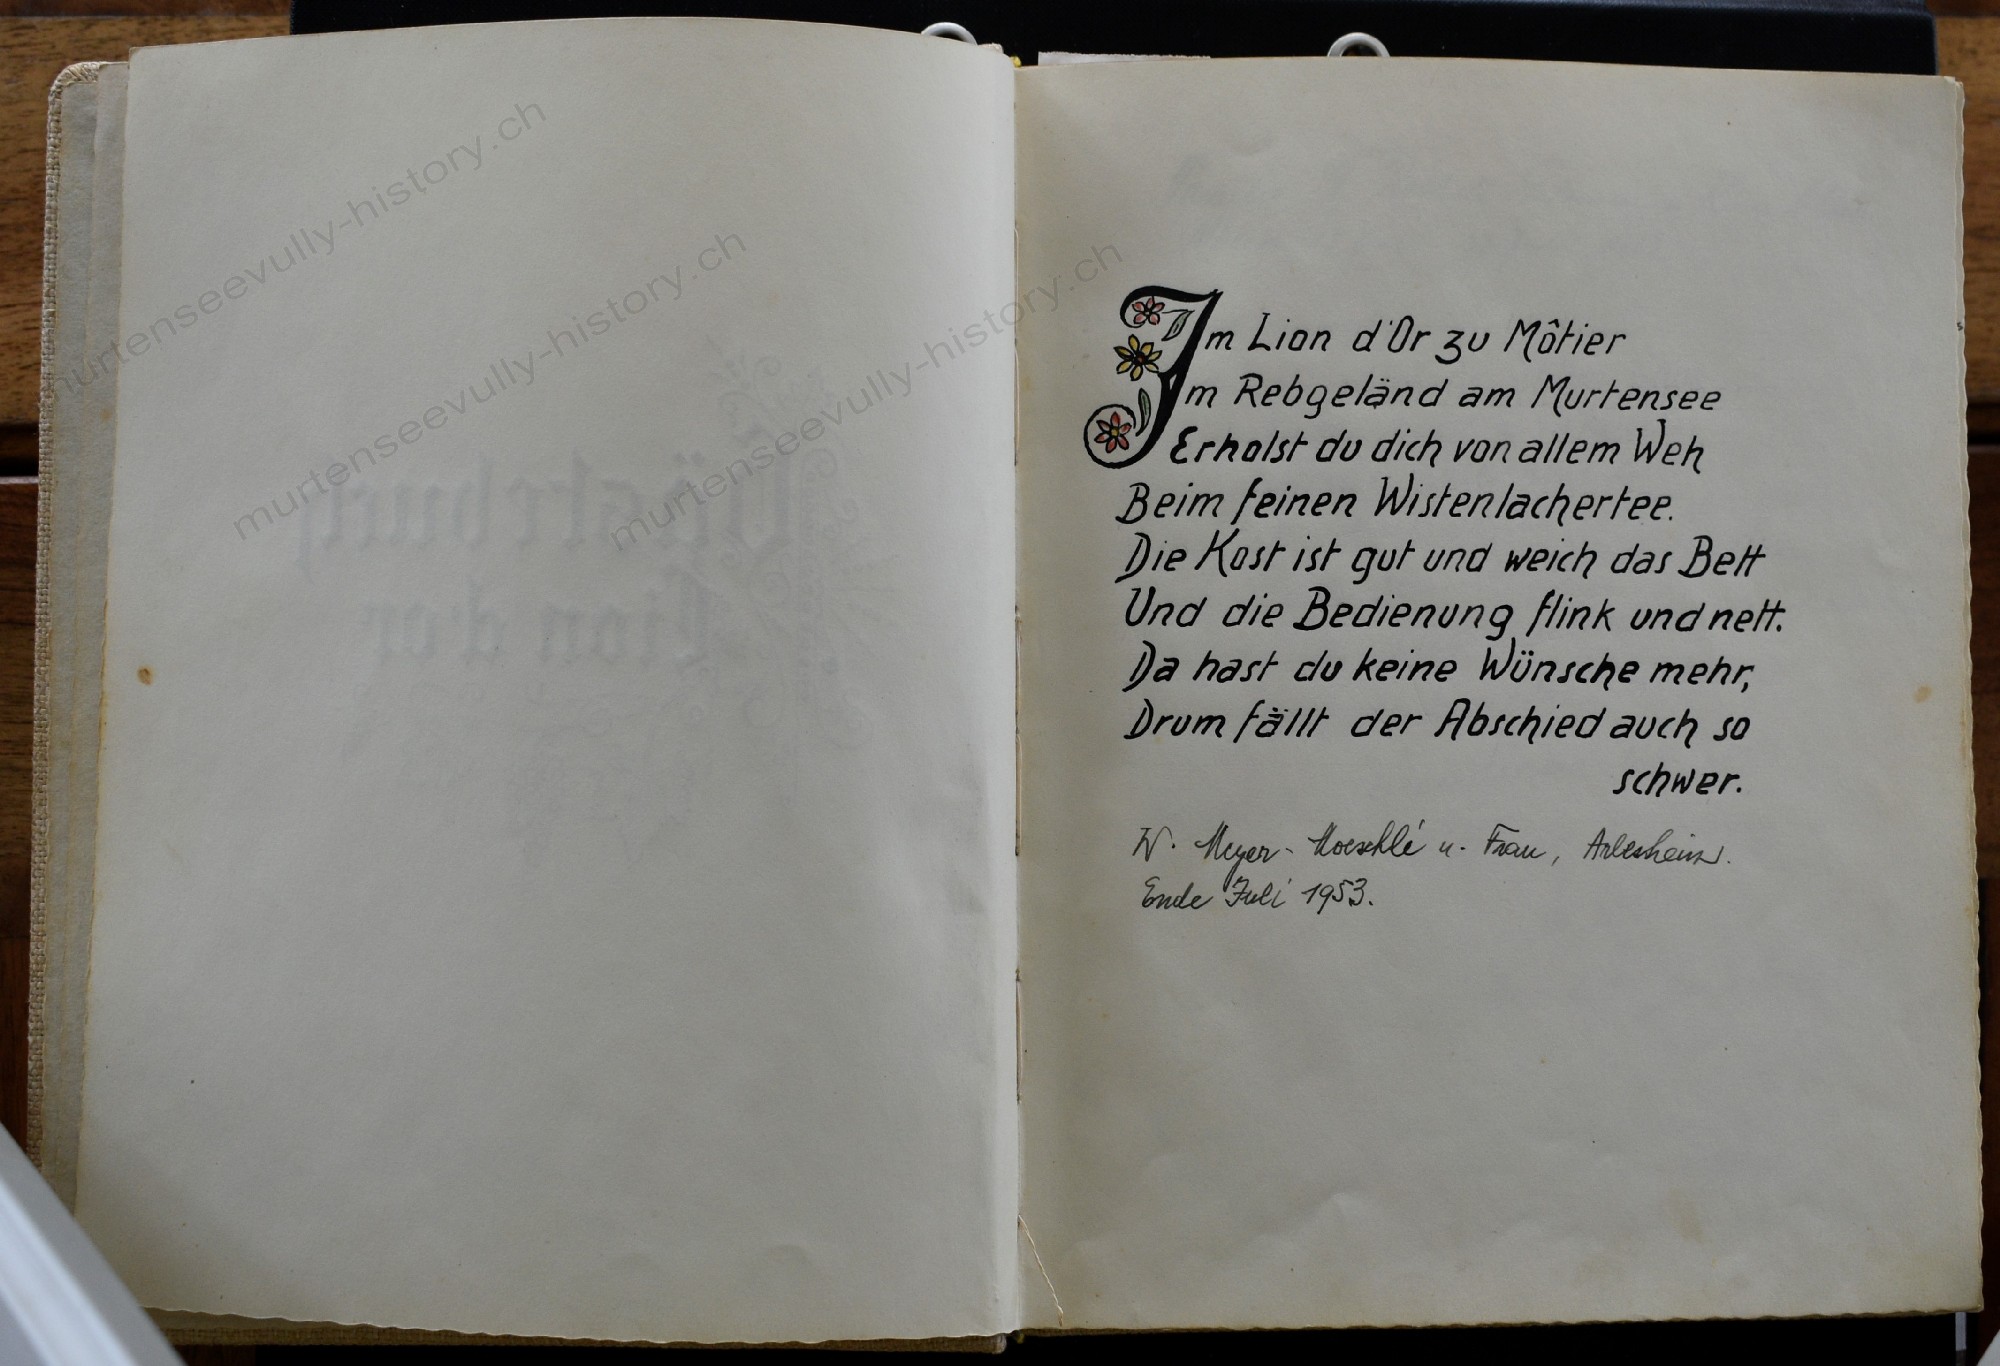 murtenseevully-history.ch
murtenseevully-history.ch
murtenseevully-history.ch
Gästebuch
Lion d'or
Im Lion d'Or zu Môtier
Im Rebgeländ am Murtensee
Erholst du dich von allem Weh
Beim feinen Wistenlachertee.
Die Kost ist gut und weich das Bett
Und die Bedienung flink und nett.
Da hast du keine Wünsche mehr,
Drum fällt der Abschied auch so
schwer.
W. Meyer-Moeschlé u. Frau, Arlesheim.
Ende Juli 1953.